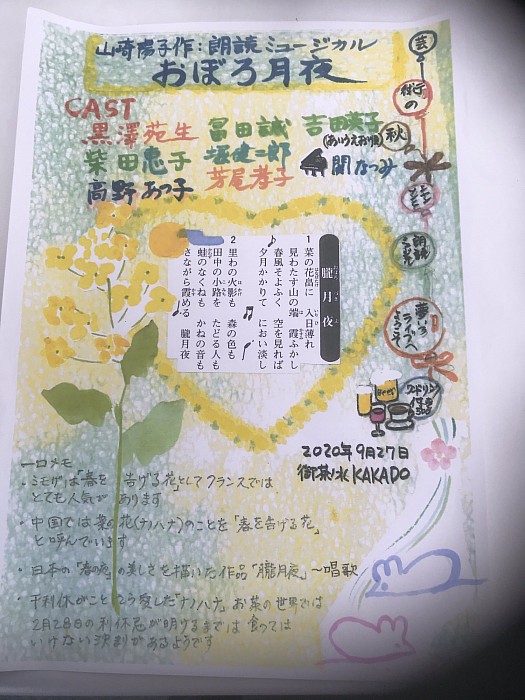 山崎陽子作:朗読ミュージカル
おぼろ月夜
CAST
黒澤苑生 冨田誠 吉田葵子
(あいうえおり順)
柴田恵子 堀健二郎 関なつみ
高野あつ子 芳尾孝子
芸
術
の
秋
朗読
夢
ライブへ
ようこそ
ワンドリンク
付
Beer
朧月夜
1 菜の花畠に 入日薄れ
見わたす山の端 霞ふかし
春風そよふく 空を見れば
夕月かかりて におい淡し
2 里わの火影も 森の色も
田中の小路を たどる人も
蛙のなくねも かねの音も
さながら霞める 朧月夜
2020年9月27日
御茶ノ水 KAKADO
一口メモ
・ミモザは「春を告げる花」としてフランスでは
とても人気があります
・中国では菜の花(ナノハナ)のことを「春を告げる花」
と呼んでいます
・日本の「春の夜」の美しさを描いた作品「朧月夜」〜唱歌
・千利休がことのほか愛した「ナノハナ」お茶の世界では
2月28日の利休忌が明けるまでは食っては
いけない決まりがあるようです